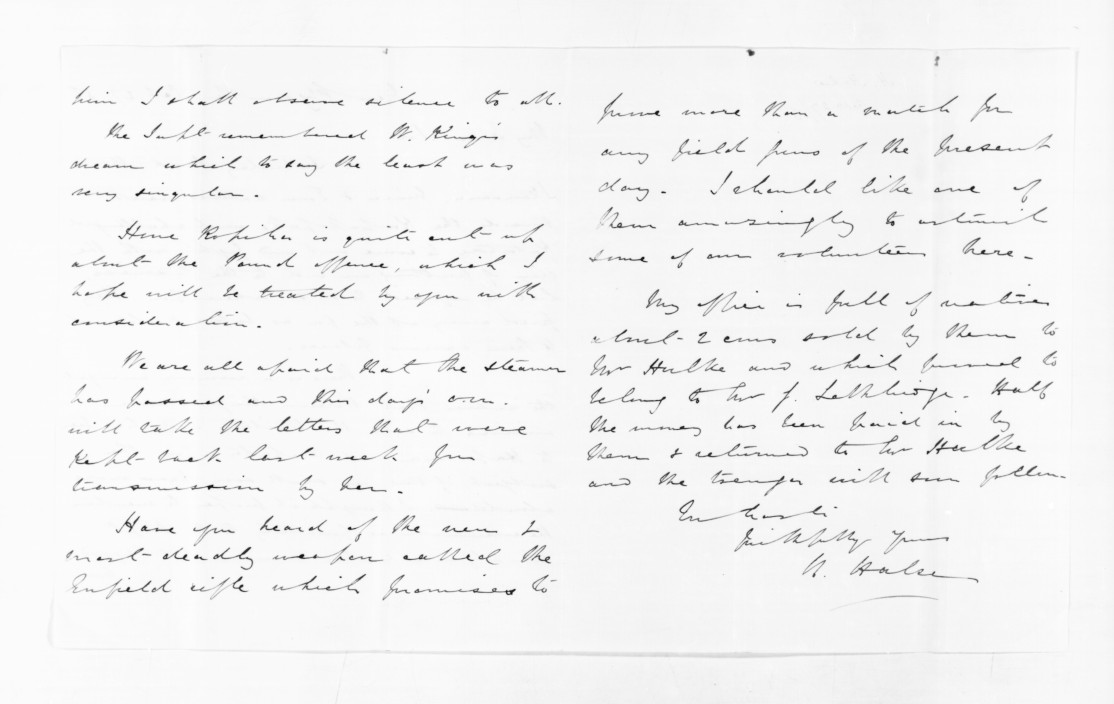 him I shall observe silence to all.
The Supt remembered W. King's
dream which to say the least was
very singular.
Hone Ropiha is quite cut up
about the Pound offence, which I
hope will be treated by you with
consideration.
We are all afraid that the steamer
has passed and this day's o.m.
will take the letters that were
kept back last week for
transmission by her.
Have you heard of the new &
most deadly weapon called the
Enfield rifle which promises to
prove more than a match for
any field guns of the present
day. I should like one of
them amazingly to astonish
some of our volunteers here.
My office is full of natives
about 2 cows sold by them to
Mr Hulke and which proved to
belong to Mr J. Lethbridge. Half
the money has been paid in by
them & returned to Mr Hulke
and the will soon follow.
In haste
Faithfully yours
H. Halse